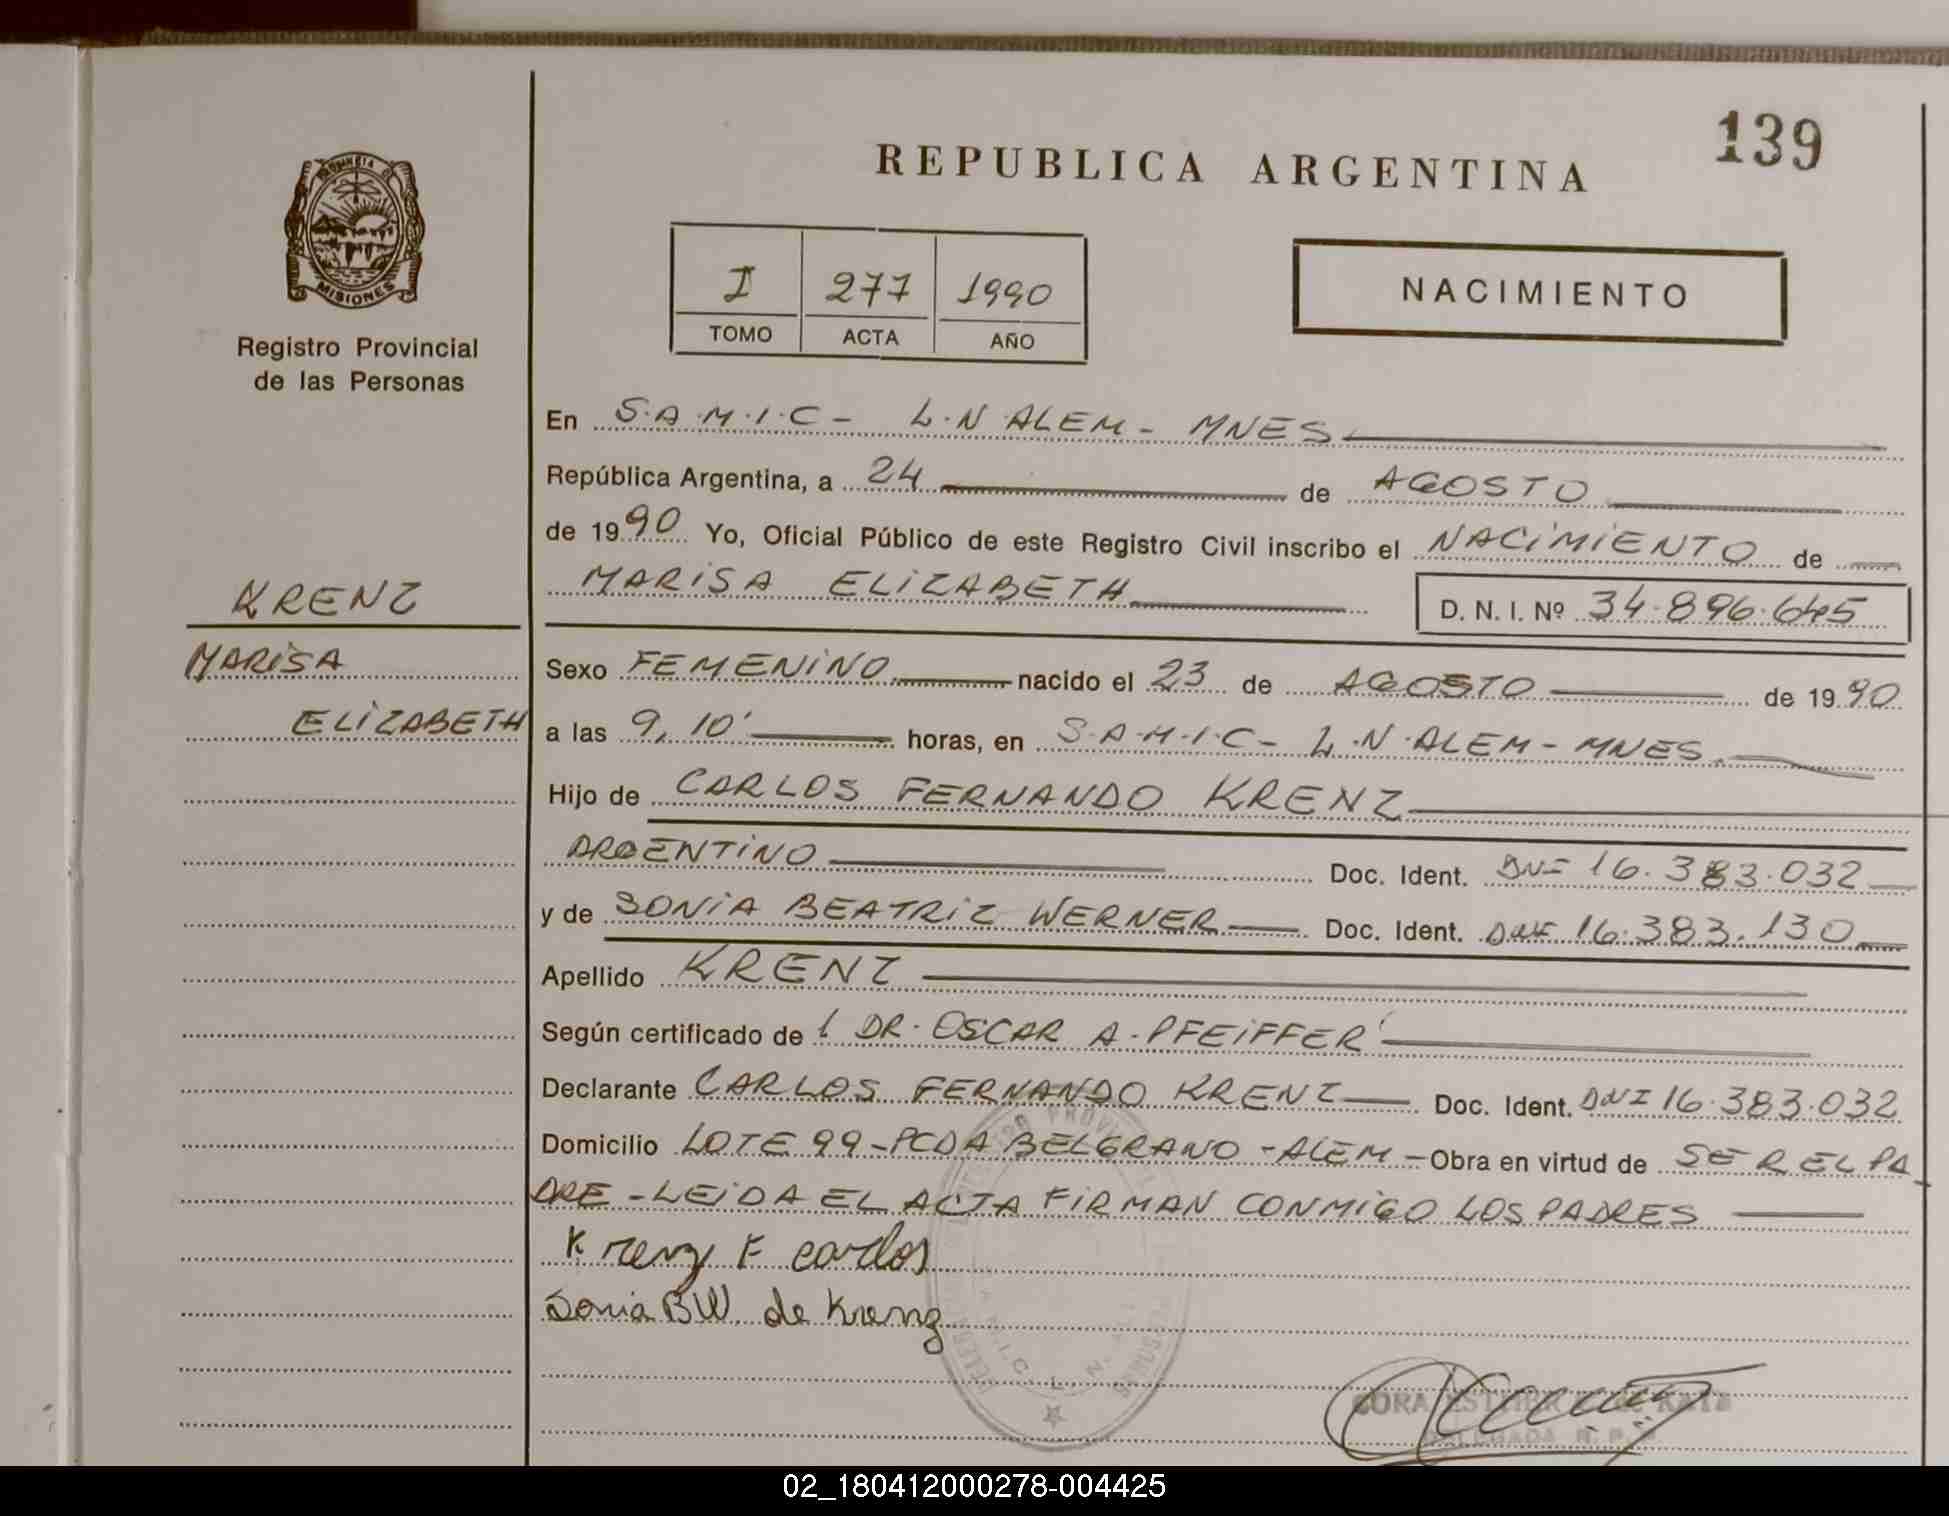 139
REPUBLICA ARGENTINA
PROVINCIA DE
MISIONES
Registro Provincial
de las Personas
I 277 1990
TOMO ACTA AÑO
NACIMIENTO
En S.A.M.I.C - L.N ALEM - MNES
República Argentina, a 24 de AGOSTO
de 1990 Yo, Oficial Público de este Registro Civil inscribo el NACIMIENTO de
MARISA ELIZABETH
D. N. I. Nº 34.896.645
KRENZ
MARISA
ELIZABETH
Sexo FEMENINO nacido el 23 de AGOSTO de 1990
a las 9,10' horas, en S.A.M.I.C - L.N.ALEM - MNES
Hijo de CARLOS FERNANDO KRENZ
ARGENTINO Doc. Ident. DNI 16.383.032
y de SONIA BEATRIZ WERNER Doc. Ident. DNI 16.383.130
Apellido KRENZ
Según certificado de DR. OSCAR A. PFEIFFER
Declarante CARLOS FERNANDO KRENZ Doc. Ident. DNI 16.383.032
Domicilio LOTE 99 - PCDA BELGRANO - ALEM - Obra en virtud de SER EL PA
DRE - LEIDA EL ACTA FIRMAN CONMIGO LOS PADRES
Krenz F carlos
Sonia BW. de Krenz
DELEGADA R. P.
02_180412000278-004425